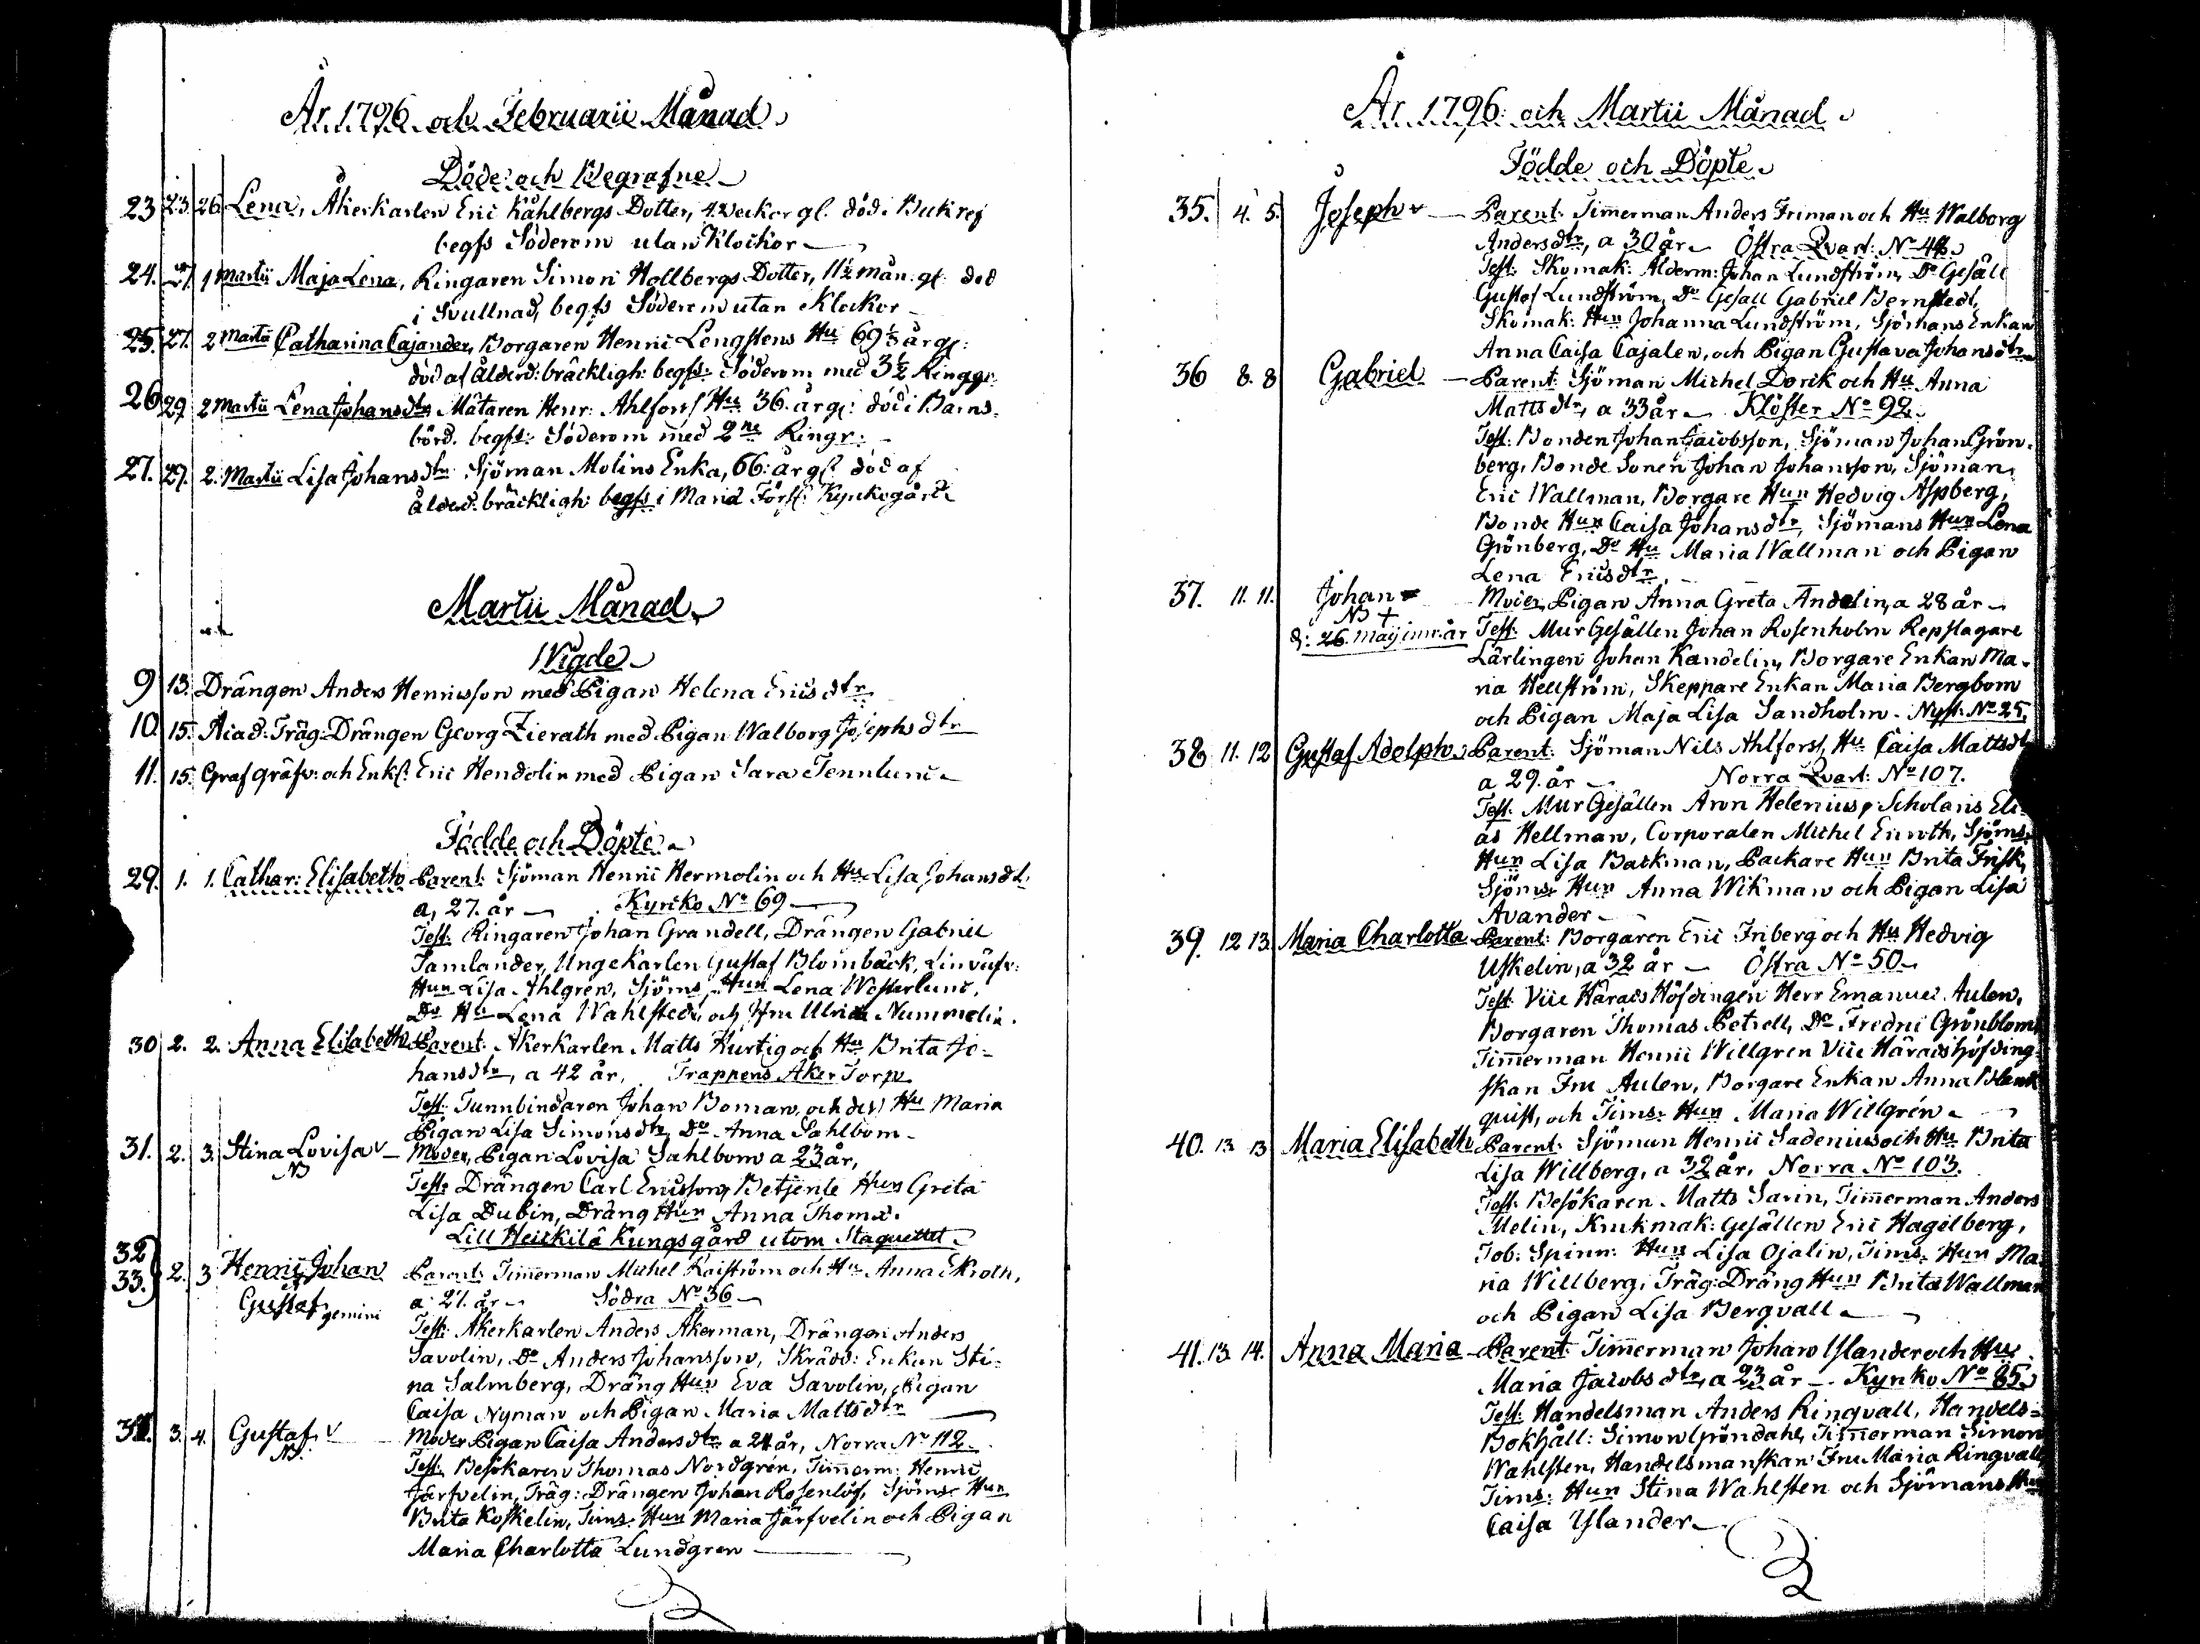 År 1796 och Februarii Månad
Döde och Begrafne
23 23. 26 Lena, Åkerkarlen Eric Kåhlbergs Dotter, 4. Veckor gl. död i Bukref
begfs Söderom utan Klockor
24. 27. 1 Martii Maja Lena, Ringaren Simon Hollbergs Dotter, 11½ mån: gl död
i Svullnad, begfs Söderom utan Klockor
25. 27. 2 Martii Catharina Cajander, Borgaren Henric Lengstens Hu 69½ år gl:
död af Ålderd: bräckligh: begfs: Söderom med 3½ Ringgr.
26 29 2 Martii Lena Johansdtr Mätaren Henr: Ahlfors Hu 36. år gl: död i Barns-
börd. begfs: Söderom med 2ne Ringr:
27. 29. 2. Martii Lisa Johansdtr Sjöman Molins Enka, 66: år gl död af
Ålderd. bräckligh: begfs i Mariæ Förs: Kyrkogård
Martii Månad
Wigde
9 13. Drängen Anders Henricsson med Pigan Helena Ericsdtr
10 15. Acad: Träg: Drängen Georg Zierath med Pigan Walborg Josephsdtr
11. 15. Graf gräfv: och Enkl: Eric Hendolin med Pigan Sara Tennlund
Födde och Döpte
29. 1. 1. Cathar: Elisabeth Parent: Sjöman Henric Hermolin och Hu Lisa Johansdt.
a, 27. år Kyrko No 69
Test: Ringaren Johan Grandell, Drängen Gabriel
Tamlander, Ungekarlen Gustaf Blombäck, Linväfv:
Hun Lisa Ahlgren, Sjöms Hun Lena Westerlund,
Do Hu Lena Wahlstedt, och Jfru Ulrica Nummelin.
30 2. 2. Anna Elisabeth Parent: Åkerkarlen Matts Hurtig och Hu Brita Jo-
hansdtr, a 42 år, Trappens Åker Torp
Test: Tunnbindaren Johan Boman, och des Hu Maria
Pigan Lisa Simonsdtr Do Anna Sahlbom
31. 2. 3. Stina Lovisa v Moder, Pigan Lovisa Sahlbom a 23 år,
NB
Test: Drängen Carl Ericsson, Betjente Hun Greta
Lisa Dubin, Dräng Hun Anna Thomæ.
Lill Heickilä Kungsgård utom Staquettet
32
33. 2. 3 Henric Johan Parent: Timerman Michel Kaiström och Hu Anna Ekroth,
Gustaf gemini a 27. år Södra No 36
Test: Åkerkarlen Anders Åkerman, Drängen Anders
Savolin, Do Anders Johansson, Skrädd: Enkan Sti-
na Salmberg, Dräng Hun Eva Savolin, Pigan
Caisa Nyman och Pigan Maria Mattsdtr
34. 3. 4. Gustaf v Moder Pigan Caisa Andersdtr a 24 år, Norra No 112
NB.
Test: Besökaren Thomas Nordgrén, Timerm: Henric
Järfvelin, Träg: Drängen Johan Rosenlöf, Sjöms Hun
Brita Koskelin, Tims: Hun Maria Järfvelin och Pigan
Maria Charlotta Lundgren
År 1796 och Martii Månad
Födde och Döpte
35. 4. 5. Joseph v Parent: Timerman Anders Friman och Hu Walborg
Andersdtr, a 30 år Östra Qvart: No 48
Test: Skomak: Ålderm: Johan Lundström, Do Gesäll
Gustaf Lundström, Do Gesäll Gabriel Bernstedt,
Skomak: Hun Johanna Lundström, Sjömans Enkan
Anna Caisa Cajalen, och Pigan Gustava Johansdtr
36 8. 8 Gabriel Parent: Sjöman Michel Dorik och Hu Anna
Mattsdtr, a 33 år Klöster No 92
Test: Bonden Johan Jacobsson, Sjöman Johan Grön-
berg, Bonde Sonen Johan Johansson, Sjöman
Eric Wallman, Borgare Hun Hedvig Aspberg,
Bonde Hun Caisa Johansdtr, Sjömans Hun Lena
Grönberg, Do Hu Maria Wallman och Pigan
Lena Ericsdtr
37. 11. 11. Johan Moder Pigan Anna Greta Andelin, a 28 år
NB +
d: 26. Maij inv: år Test: Mur Gesällen Johan Rosenholm Repslagare
Lärlingen Johan Kandelin, Borgare Enkan Ma-
ria Hellström, Skeppare Enkan Maria Bergbom
och Pigan Maja Lisa Sandholm. Nyst: No 25.
38 11. 12 Gustaf Adolph Parent: Sjöman Nils Ahlfors, Hu Caisa Mattsdt
a 29. år Norra Qvart: No 107.
Test: Mur Gesällen Aron Helenius, Scholaris Eli-
as Hellman, Corporalen Michel Enroth, Sjöms
Hun Lisa Backman, Packare Hun Brita Frisk,
Sjöms Hun Anna Wikman och Pigan Lisa
Avander
39. 12 13. Maria Charlotta Parent: Borgaren Eric Friberg och Hu Hedvig
Uskelin, a 32 år Östra No 50
Test: Vice Härads Höfdingen Herr Emanuel Aulen,
Borgaren Thomas Petrell, Do Fredric Grönblom
Timerman Henric Willgren Vice Häradshöfding-
skan Fru Aulen, Borgare Enkan Anna Blanck
quist, och Tims: Hun Maria Willgrén
40. 13 13 Maria Elisabeth Parent: Sjöman Henric Sadenius och Hu Brita
Lisa Willberg, a 32 år, Norra No 103.
Test: Besökaren Matts Sarin, Timerman Anders
Melin, Krukmak: Gesällen Eric Hagelberg,
Tob: Spinn: Hun Lisa Ojalin, Tims. Hun Ma-
ria Willberg, Träg: Dräng Hun Brita Wallman
och Pigan Lisa Bergvall
41. 13 14. Anna Maria Parent: Timerman Johan Ylander och Hu
Maria Jacobsdtr, a 23 år Kyrko No 85
Test: Handelsman Anders Ringvall, Handels-
Bokhåll: Simon Gröndahl, Timerman Simon
Wahlsten, Handelsmanskan Fru Maria Ringvall
Tims: Hun Stina Wahlsten och Sjömans Hun
Caisa Ylander